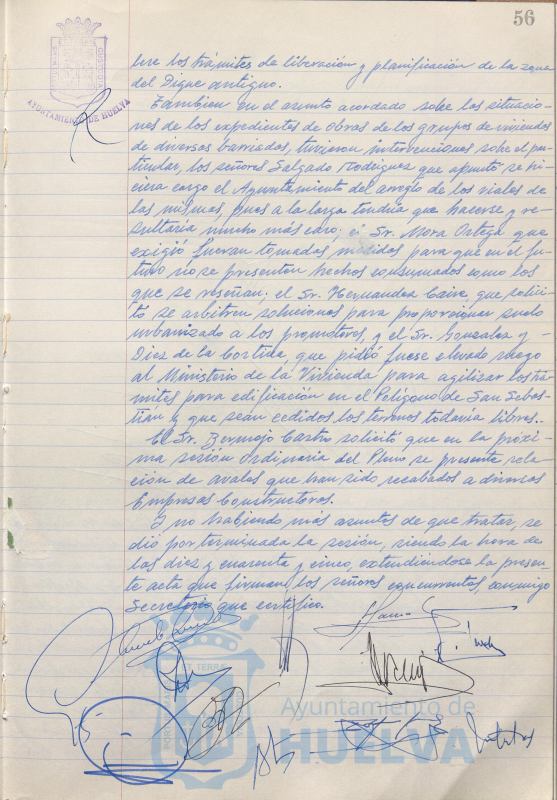 56
AYUNTAMIENTO DE HUELVA
los trámites de liberación y planificación de la zona
del Dique antiguo.
Tambien en el asunto acordado sobre las situacio-
nes de los expedientes de obras de los grupos de viviendas
de diversas barriadas, tuvieron intervenciones sobre el par-
ticular, los señores Salgado Rodriguez que apuntó se hi-
ciera cargo el Ayuntamiento del arreglo de los viales de
las mismas, pues a la larga tendria que hacerse y re-
sultaria mucho más caro; el Sr. Mora Ortega que
exigió fueran tomadas medidas para que en el fu-
turo no se presenten hechos consumados como los
que se reseñan; el Sr. Hernandez que solici-
tó se arbitren soluciones para proporcionar suelo
urbanizado a los promotores, y el Sr. Gonzalez y
Diez de la Cortina, que pidió fuese elevado ruego
al Ministerio de la Vivienda para agilizar los trá-
mites para edificación en el Polígono de San Sebas-
tián y que sean cedidos los terrenos todavía libres.
El Sr. Bermejo Castro solicitó que en la próxi-
ma sesión ordinaria del Pleno se presente rela-
ción de avales que han sido recabados a diversas
Empresas Constructoras.
Y no habiendo más asuntos de que tratar, se
dió por terminada la sesión, siendo la hora de
las diez y cuarenta y cinco, extendiéndose la presen-
te acta que firman los señores concurrentes, conmigo
Secretario que certifico.
Ayuntamiento de
HUELVA